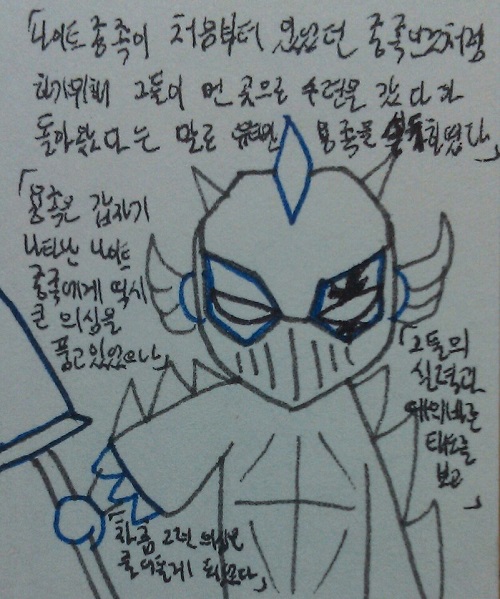 「나이트종족이 처음부터 있었던 종족인것처럼
하기위해 그들이 먼 곳으로 수련을 갔다가
돌아왔다는 말로 용족을 했다」
「용족은 갑자기
나타난 나이트
종족에게 역시
큰 의심을
품고있었으나」
「그들의
실력과
태도를
보고」
「차츰 그런 의심은
줄어들게 되었다」